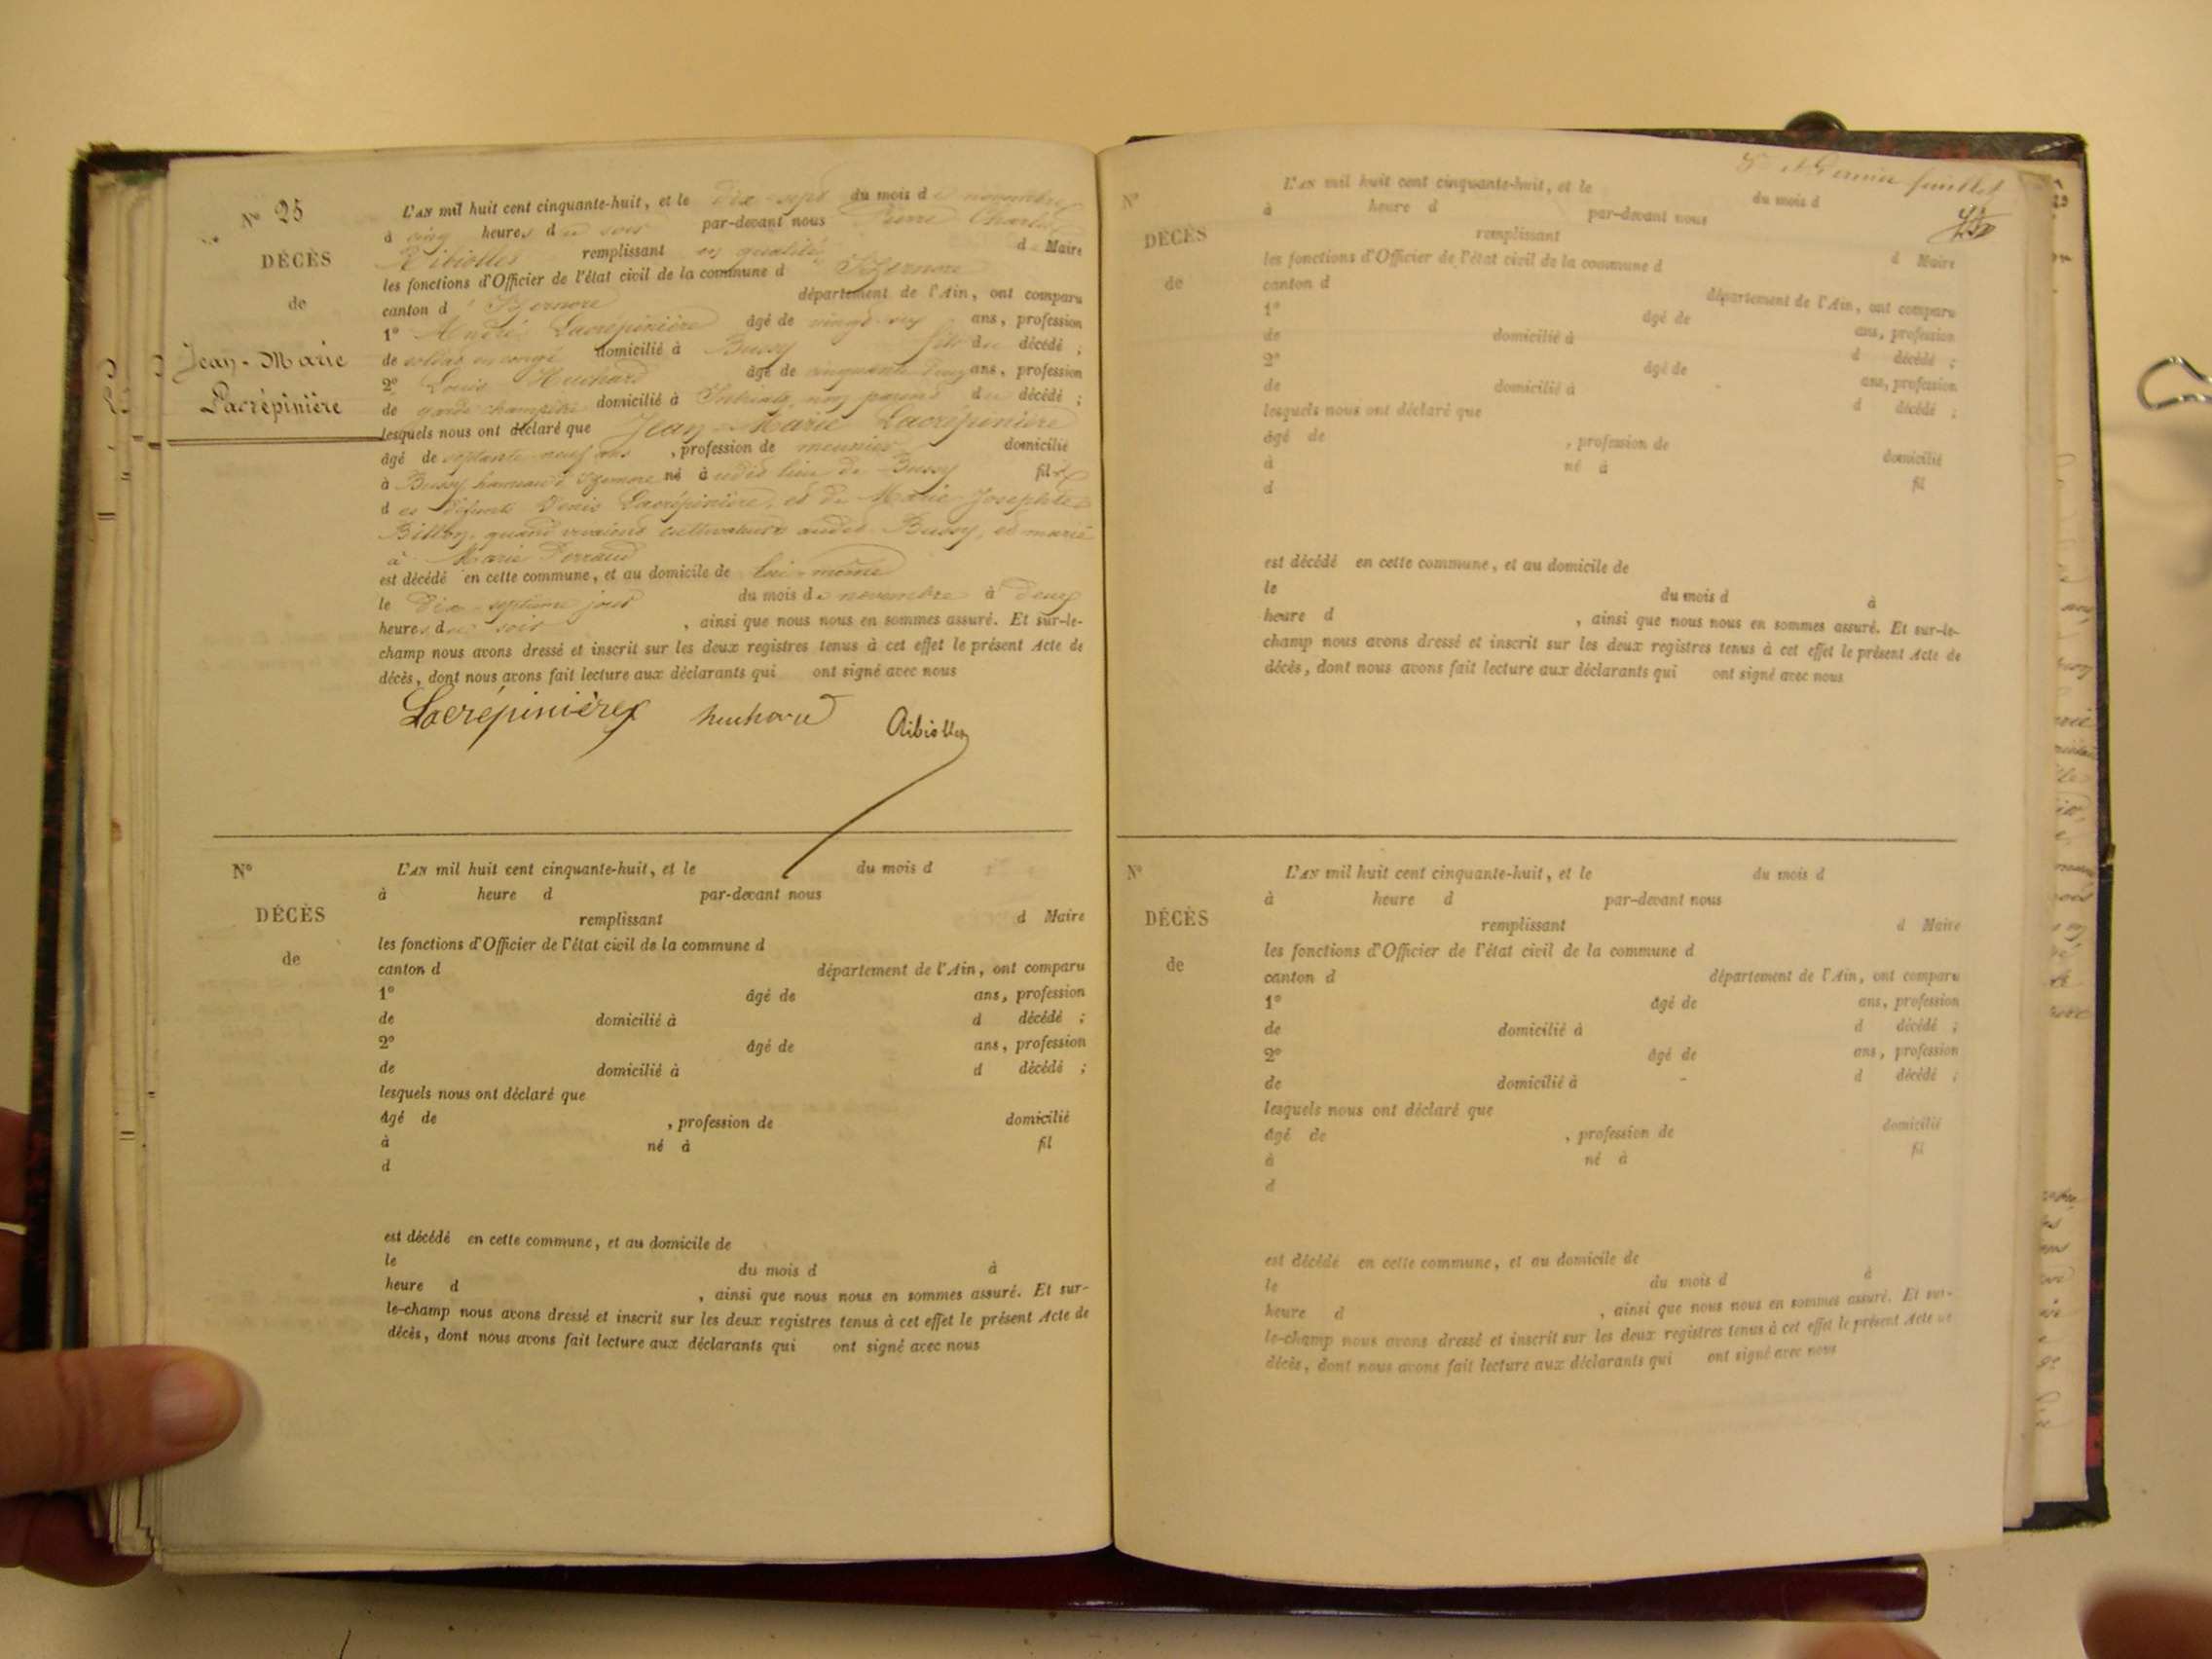 N° 25
DÉCÈS
de
Jean-Marie
Lacrépinière
L'AN mil huit cent cinquante-huit, et le dix-sept du mois de novembre
à cinq heures du soir par-devant nous Pierre Charles
Ribiolles remplissant en qualité d Maire
les fonctions d'Officier de l'état civil de la commune d Izernore
canton d'Izernore département de l'Ain, ont comparu
1° André Lacrépinière âgé de vingt-six ans, profession
de soldat en congé domicilié à Bussy fils du décédé ;
2° Louis Huchard âgé de cinquante deux ans, profession
de garde champêtre domicilié à Intriat, non parent du décédé ;
lesquels nous ont déclaré que Jean-Marie Lacrépinière
âgé de septante-neuf ans , profession de meunier domicilié
à Bussy, hameau d'Izernore né audit lieu de Bussy fils
des défunts Denis Lacrépinière, et de Marie-Josephte
Billon, quand vivaient cultivateurs audit Bussy, et marié
à Marie Perraud
est décédé en cette commune, et au domicile de lui-même
le dix-septième jour du mois de novembre à deux
heures du soir , ainsi que nous nous en sommes assuré. Et sur-le-
champ nous avons dressé et inscrit sur les deux registres tenus à cet effet le présent Acte de
décès, dont nous avons fait lecture aux déclarants qui ont signé avec nous
Lacrépinière huchard Ribiolles
N°
DÉCÈS
de
L'AN mil huit cent cinquante-huit, et le du mois d
à heure d par-devant nous
remplissant d Maire
les fonctions d'Officier de l'état civil de la commune d
canton d département de l'Ain, ont comparu
1° âgé de ans, profession
de domicilié à d décédé ;
2° âgé de ans, profession
de domicilié à d décédé ;
lesquels nous ont déclaré que
âgé de , profession de domicilié
à né à fil
d
est décédé en cette commune, et au domicile de
le du mois d à
heure d , ainsi que nous nous en sommes assuré. Et sur-
le-champ nous avons dressé et inscrit sur les deux registres tenus à cet effet le présent Acte de
décès, dont nous avons fait lecture aux déclarants qui ont signé avec nous
et dernier feuillet
N°
DÉCÈS
de
L'AN mil huit cent cinquante-huit, et le du mois d
à heure d par-devant nous
remplissant d Maire
les fonctions d'Officier de l'état civil de la commune d
canton d département de l'Ain, ont comparu
1° âgé de ans, profession
de domicilié à d décédé ;
2° âgé de ans, profession
de domicilié à d décédé ;
lesquels nous ont déclaré que
âgé de , profession de domicilié
à né à fil
d
est décédé en cette commune, et au domicile de
le du mois d à
heure d , ainsi que nous nous en sommes assuré. Et sur-le-
champ nous avons dressé et inscrit sur les deux registres tenus à cet effet le présent Acte de
décès, dont nous avons fait lecture aux déclarants qui ont signé avec nous
N°
DÉCÈS
de
L'AN mil huit cent cinquante-huit, et le du mois d
à heure d par-devant nous
remplissant d Maire
les fonctions d'Officier de l'état civil de la commune d
canton d département de l'Ain, ont comparu
1° âgé de ans, profession
de domicilié à d décédé ;
2° âgé de ans, profession
de domicilié à d décédé ;
lesquels nous ont déclaré que
âgé de , profession de domicilié
à né à fil
d
est décédé en cette commune, et au domicile de
le du mois d à
heure d , ainsi que nous nous en sommes assuré. Et sur-
le-champ nous avons dressé et inscrit sur les deux registres tenus à cet effet le présent Acte de
décès, dont nous avons fait lecture aux déclarants qui ont signé avec nous